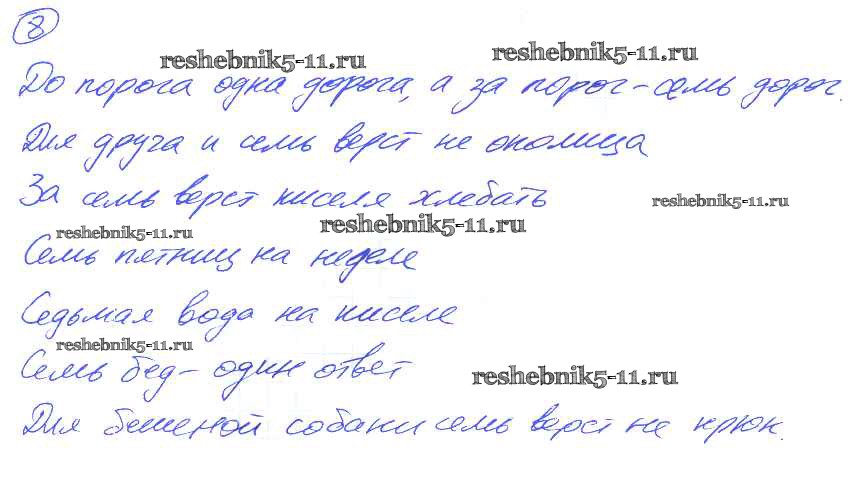 8
reshebnik5-11.ru reshebnik5-11.ru
До порога одна дорога, а за порог - семь дорог.
Для друга и семь верст не околица
За семь верст киселя хлебать
reshebnik5-11.ru
reshebnik5-11.ru reshebnik5-11.ru
Семь пятниц на неделе
Седьмая вода на киселе
reshebnik5-11.ru
Семь бед - один ответ
reshebnik5-11.ru
Для бешеной собаки семь верст не крюк.